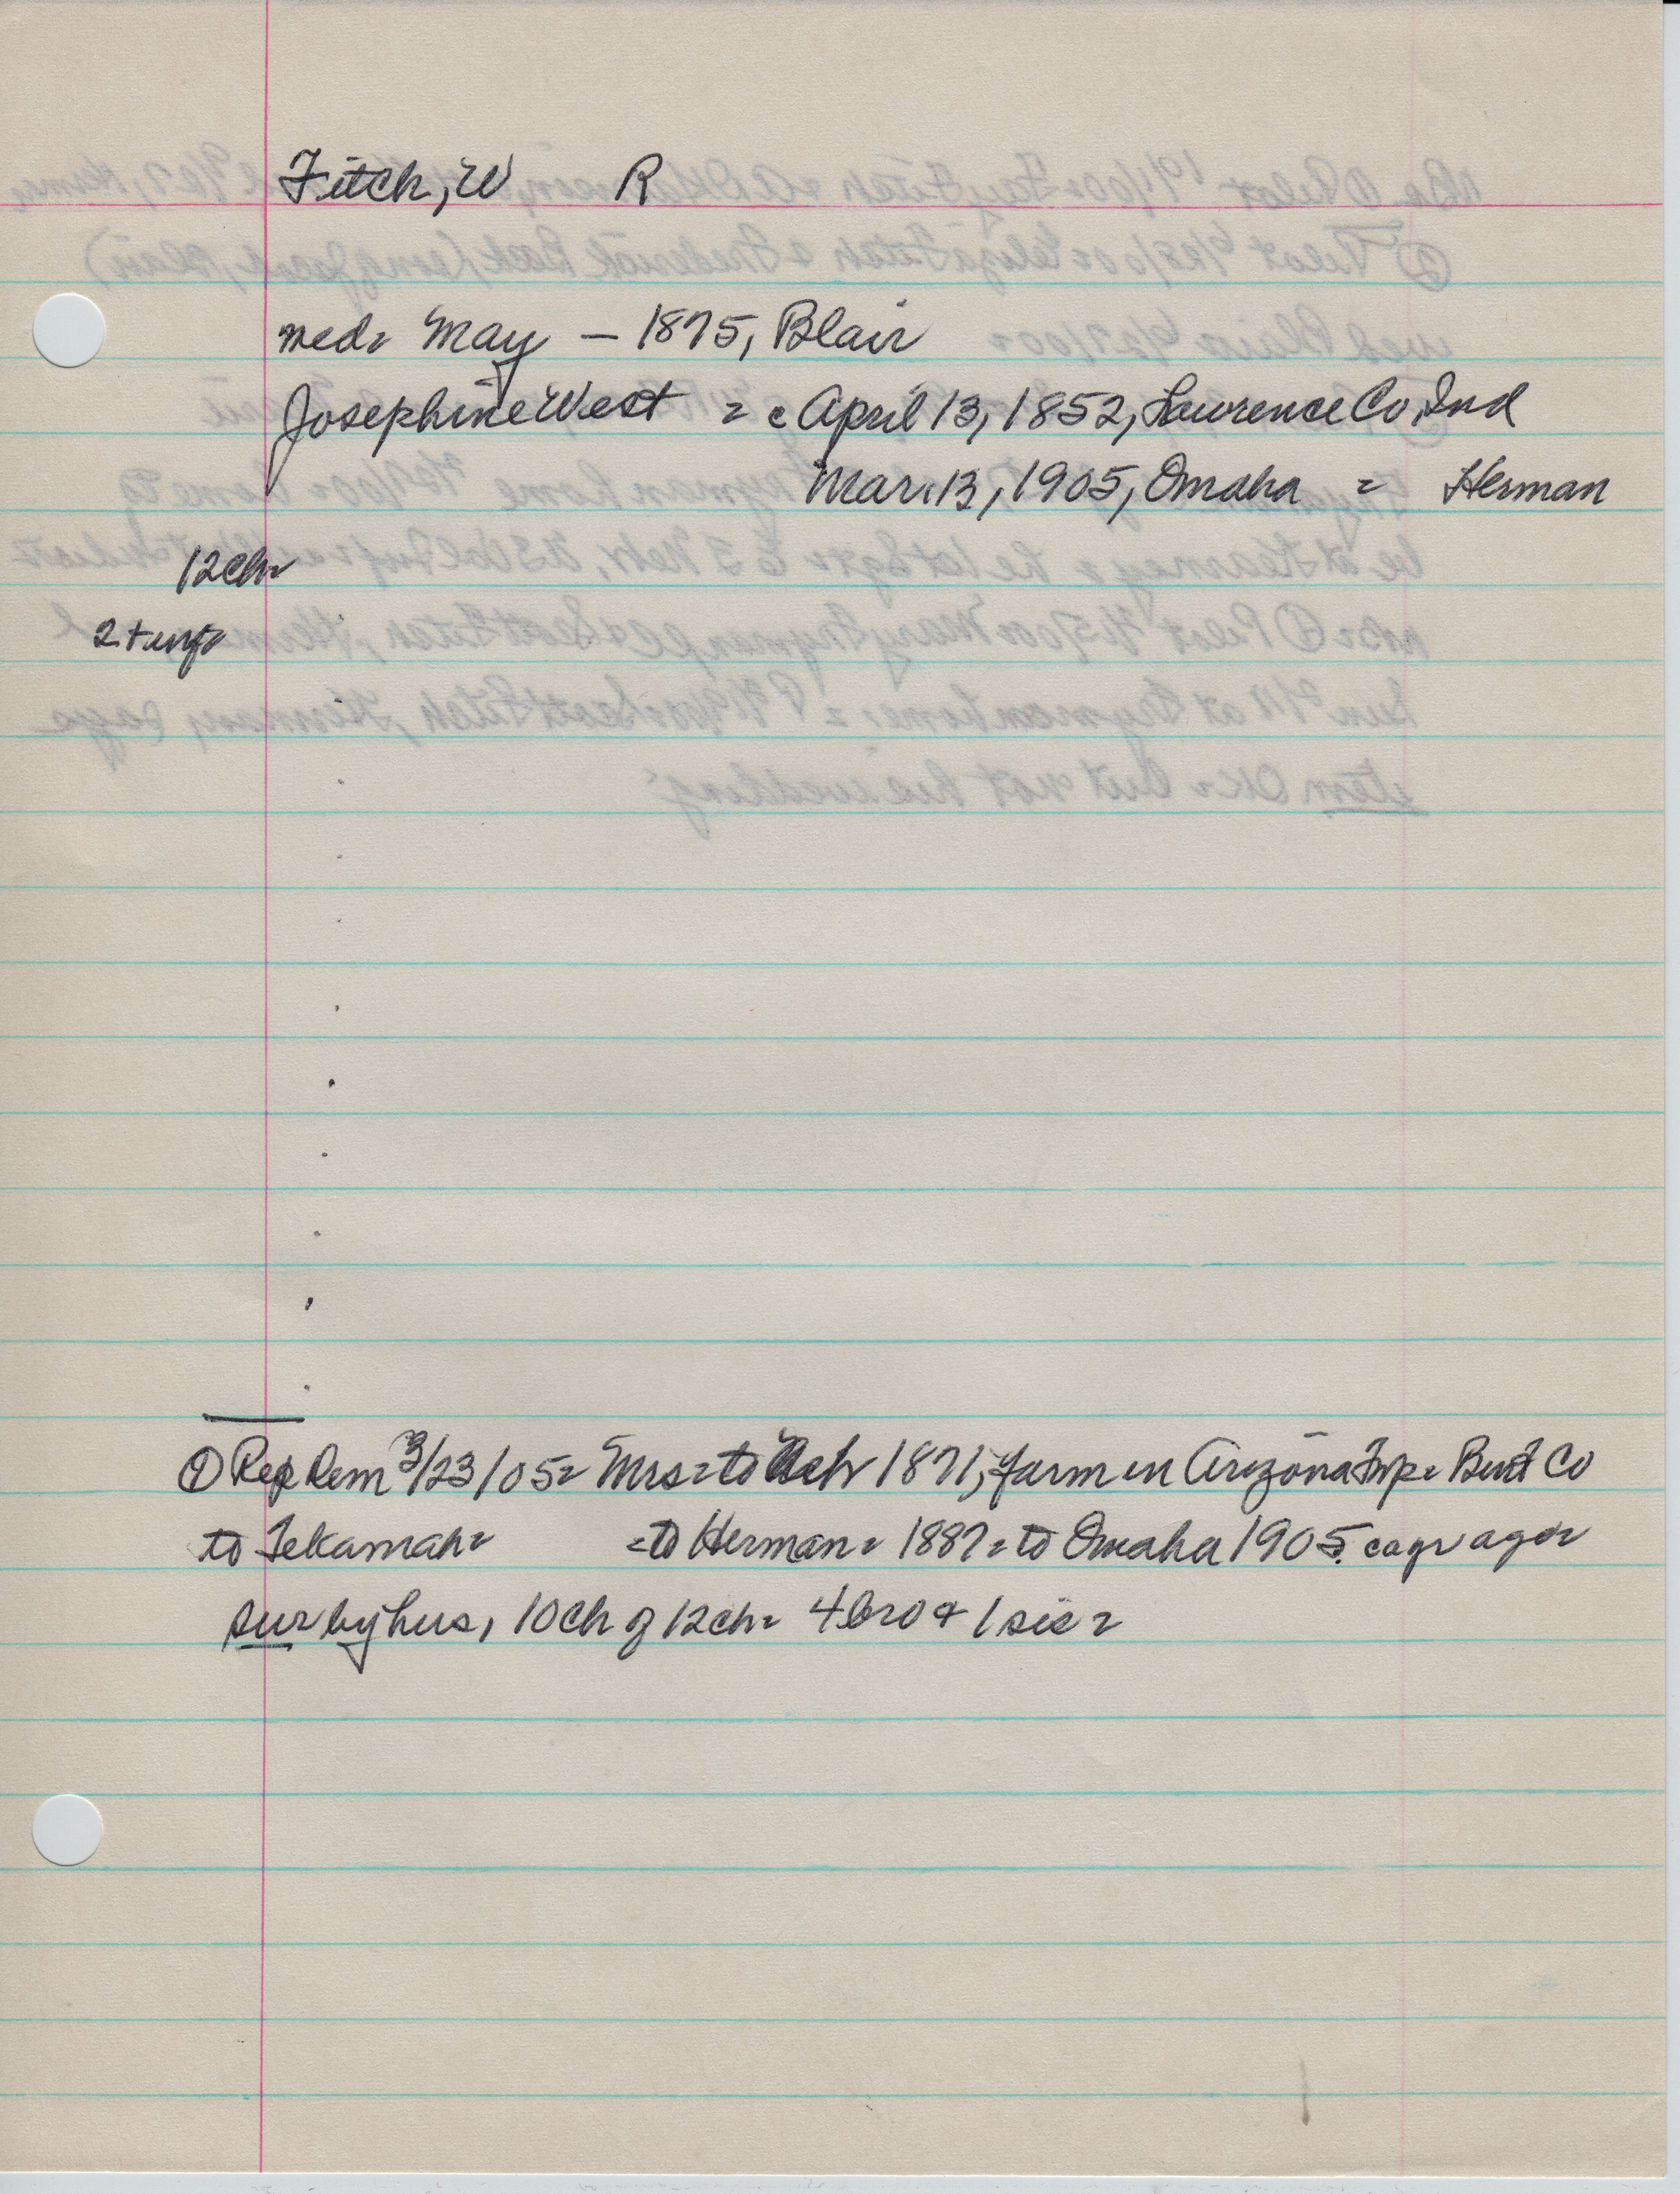 Fitch, W R
med= May - 1875, Blair
Josephine West = c April 13, 1852, Lawrence Co, Ind
Mar. 13, 1905, Omaha = Herman
12 ch=
2 + inf=
① Rep Dem 3/23/05= Mrs= to Neb 1871, farm in Arizona Twp= Burt Co
to Tekamah= =to Herman= 1887= to Omaha 1905
sur by hus, 10 ch of 12 ch= 4 bro & 1 sis=